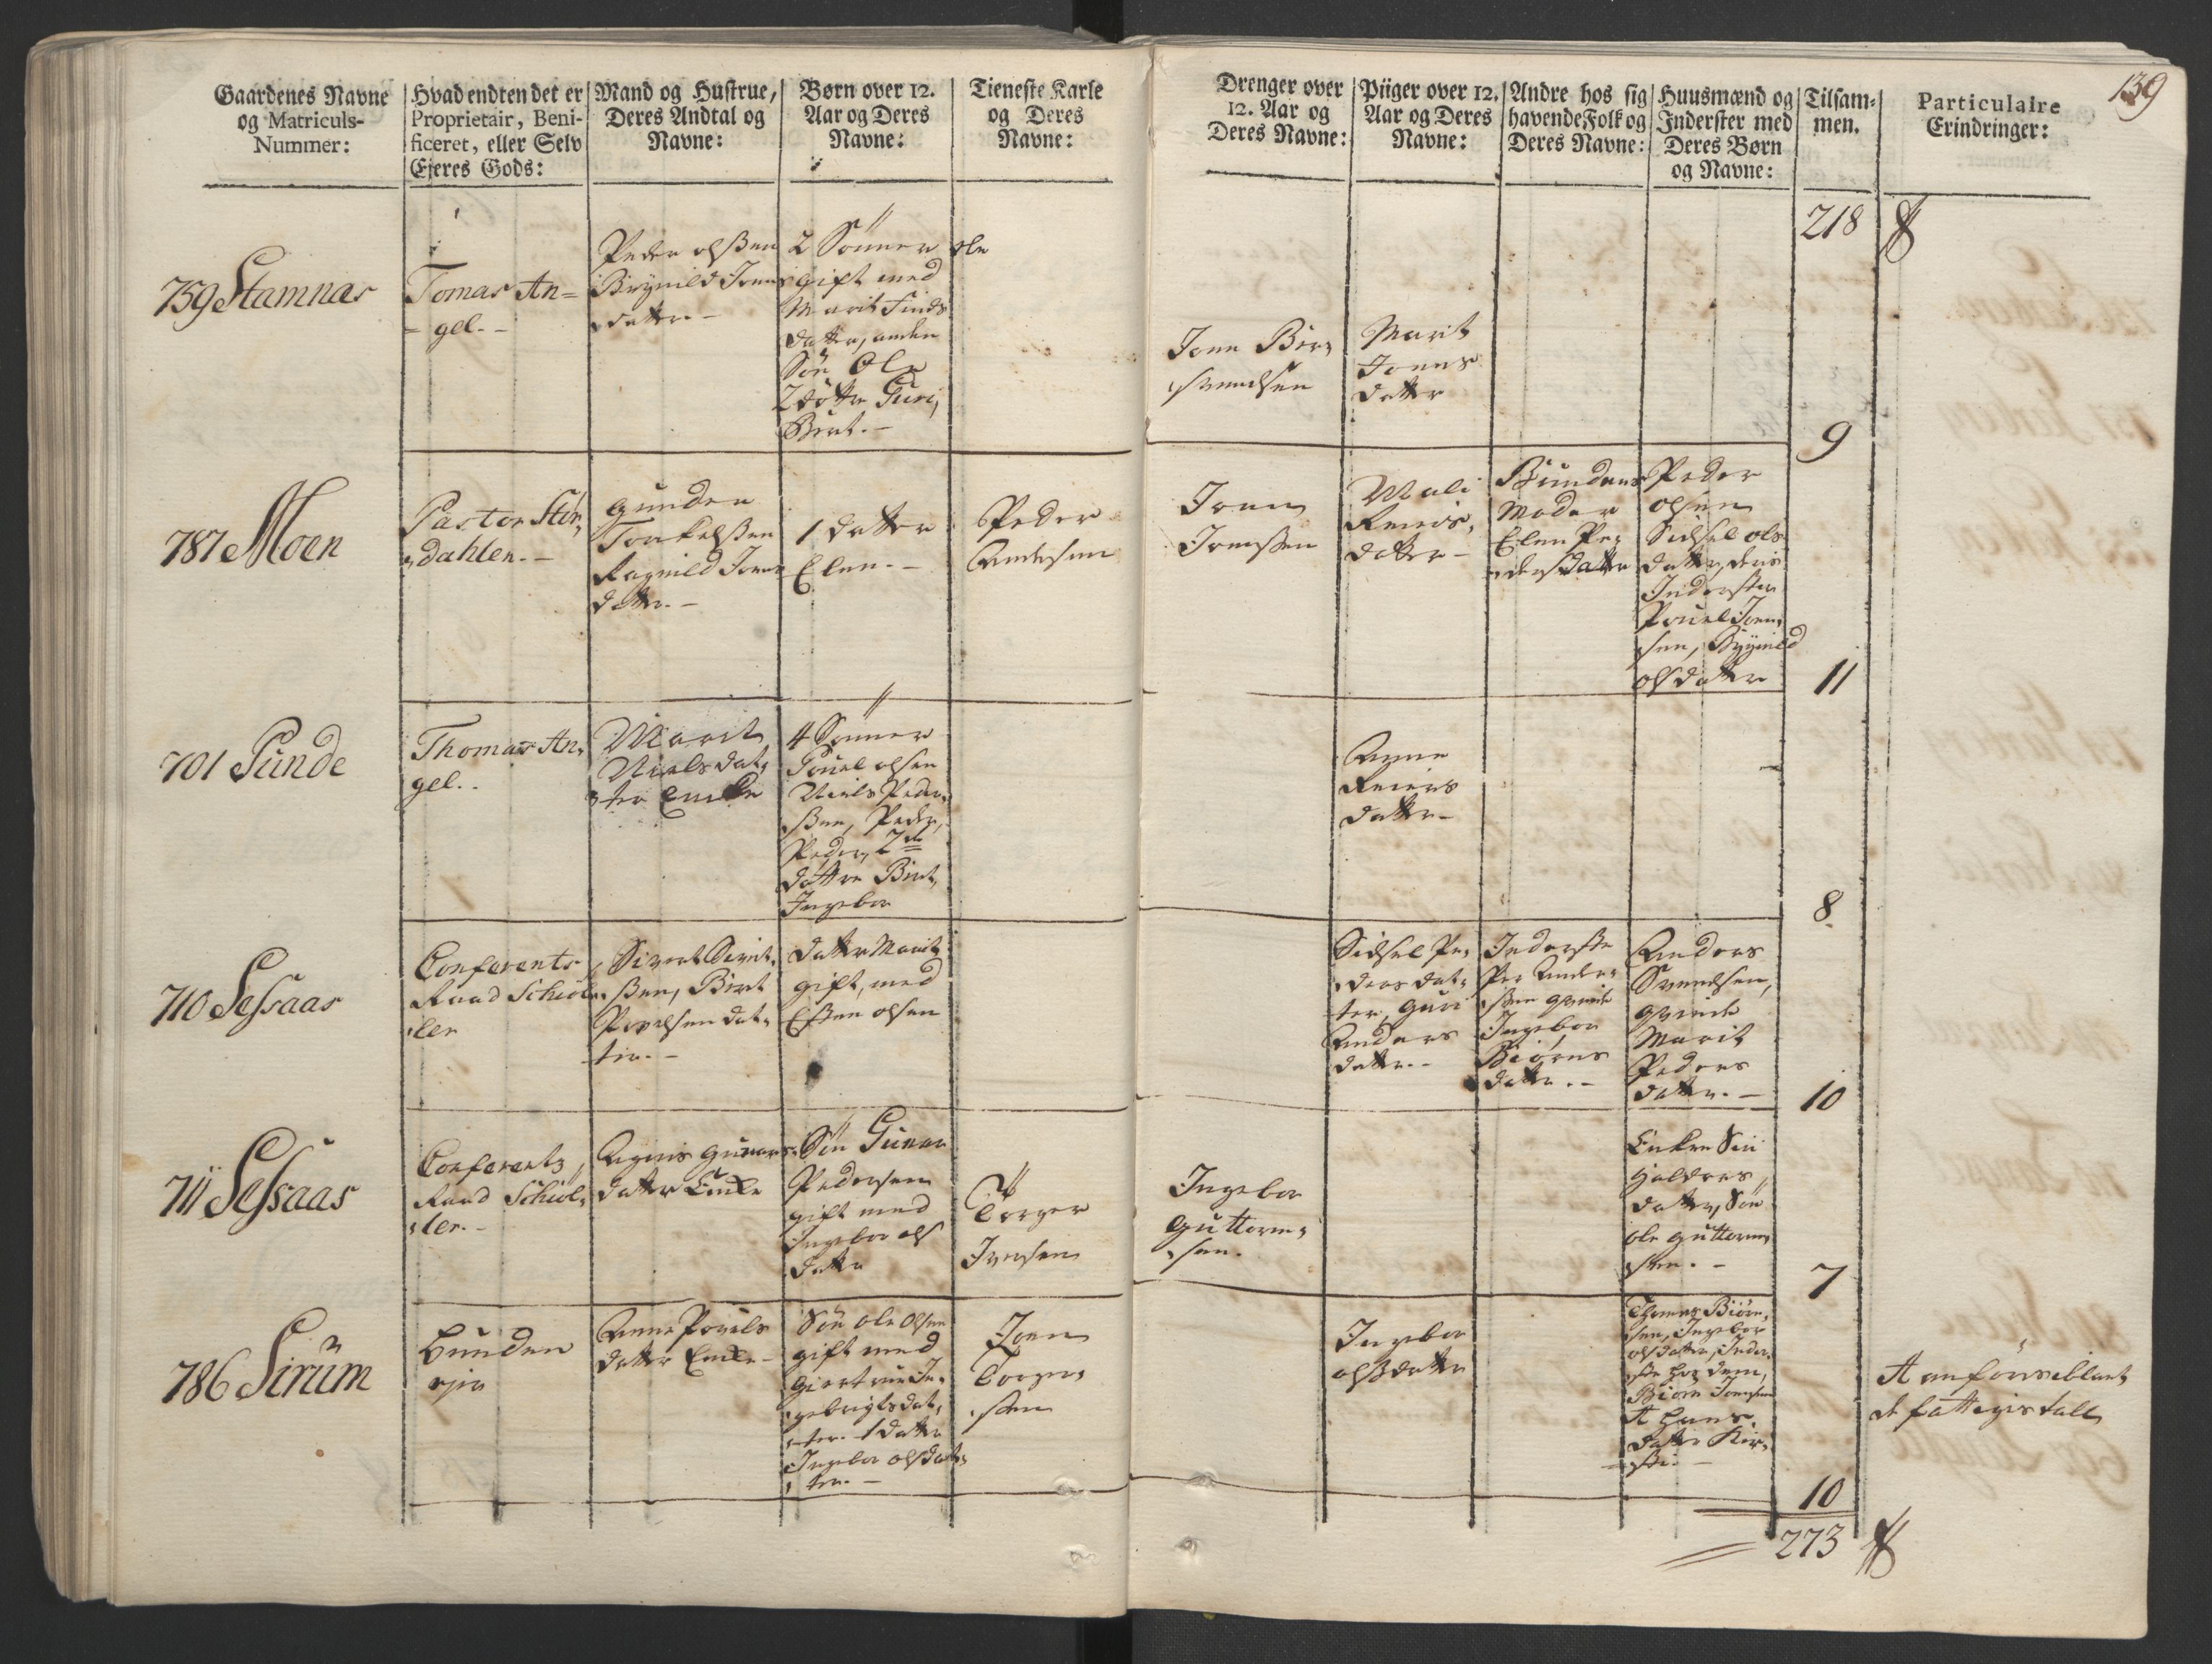 139
Gaardenes Navne
og Matriculs-
Nummer:
Hvad endten det er
Proprietair, Beni-
ficeret, eller Selv
Ejeres Gods:
Mand og Hustrue,
Deres Andtal og
Navne:
Børn over 12.
Aar og Deres
Navne:
Tieneste Karle
og Deres
Navne:
Drenger over
12. Aar og
Deres Navne:
Piiger over 12.
Aar og Deres
Navne:
Andre hos sig
havende Folk og
Deres Navne:
Huusmænd og
Inderster med
Deres Børn
og Navne:
Tilsam-
men.
Particulaire
Erindringer:
218
759 Stamnas
Tomas An=
gel.
Peder olßen
Brynild Joens
datter
2 Sönner ole
gift med
Marit Finds
datter, anden
Sön Ole
2 döttre Guri,
Birt.
Jonn Ber,
svendsen
Marit
Joens
datter
9
787 Moen
Pastor Stör,
dahlen.
gunder
Torkelßen
Ragnild Joens
datter.
1 datter
Elen.
Peder
Andersen
Joen
Jonßen
Mali
Reiers,
datter
Bundens
Moder
Elen Pe,
ders datter
Peder
olsen
Sidsel ols
datter, deris
Inderster
Pouel Joen,
sen, Brynild
olsdatter
11
701 Sunde
Thomas An,
gel.
Marit
Niels dat,
ter Encke
4 Sönner
Pouel olsen
Niels Peder,
ßen, Peder,
Peder, 2
döttre Birt,
Ingebor
Anne
Reiers
datter
8
710 Sessaas
Conferents
Raad Schiöl,
ler
Sivert Sivert,
ßen, Birt
Povelsen dat,
ter.
datter Marit
gift, med
Esten olsen
Sidsel Pe,
ders dat,
ter, Guri
Anders
datter.
Inderste
Per Ander,
sen qvinde
Ingebor
Biörns
datter.
Anders
Svendsen,
qvinde
Marit
Peders
datter.
10
711 Sessaas
Conferentz
Raad Schiöl,
ler.
Agnis gunars
datter Encke
Sön Gunar
Pedersen
gift med
Ingebor ols
datter
Torger
Iversen
Ingebor
Guttorm,
sen.
Encken Siri
Haldors,
datter, Sön
ole guttorm,
sen.
7
786 Sirum
bunden
ejer
Anne Povels
datter Encke
Sön ole olsen
gift med
Giertrue In,
gebrigts dat,
ter. 1 datter
Ingebor olsdat,
ter.
Joen
Torger,
sen
Ingebor
olsdatter
Thomas Biörn,
sen, Ingebor
olsdatter, Inder,
ste hoz dem,
Biörn Joensen
Hans
datter Kir,
sti.
10
anföres iblant
de fattigis tall
273